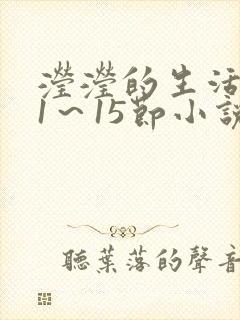 瀅瀅的生活
1～15節小說
聽葉落的聲音